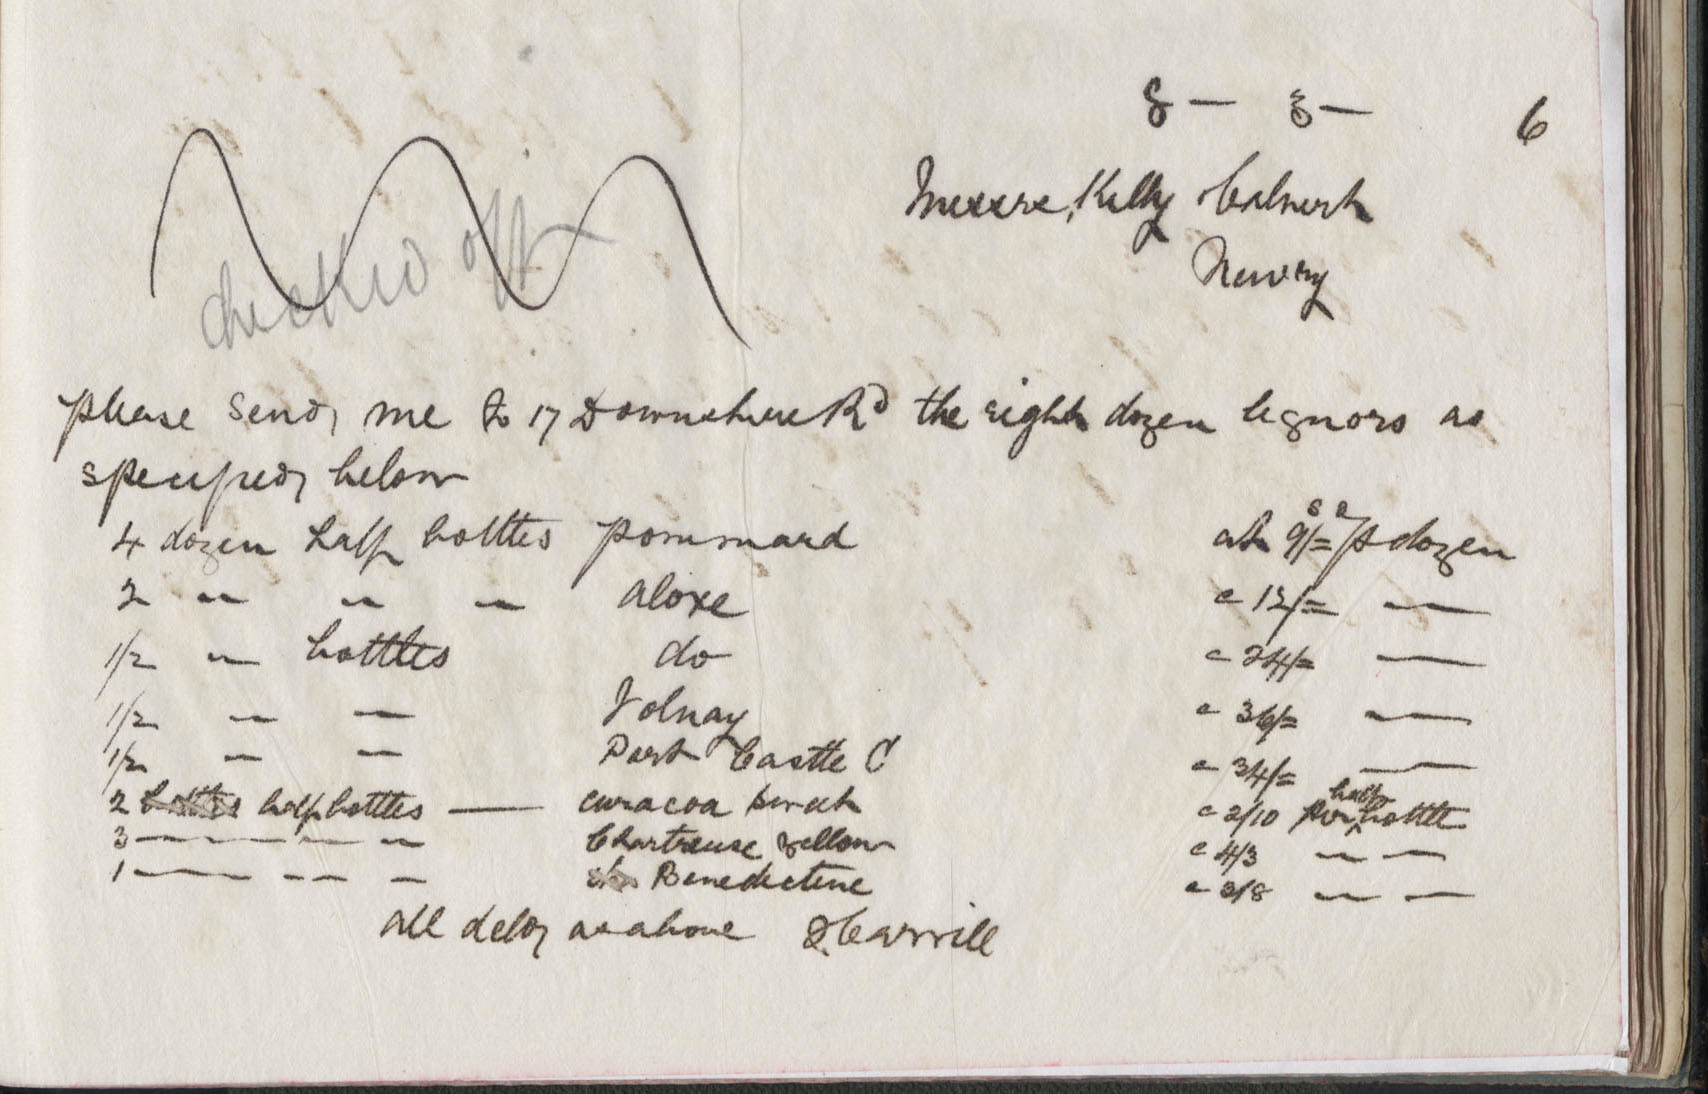 8 — 3 — 6
Messrs, Kelly Calnert
Newry
checked off
please send, me to 17 Downshire Rd the eight dozen liquors as
specified, below
4 dozen half bottles pommard at 9/= p dozen
2 " " " aloxe @ 12/= —
1/2 " bottles do @ 24/= —
1/2 — — Volnay @ 36/= —
1/2 — — Port Castle C @ 34/= —
2 half bottles — curacoa @ 2/10 per half bottle
3 — — — Chartreuse yellow @ 4/3 — —
1 — — — — Benedictine @ 3/8 — —
all as above